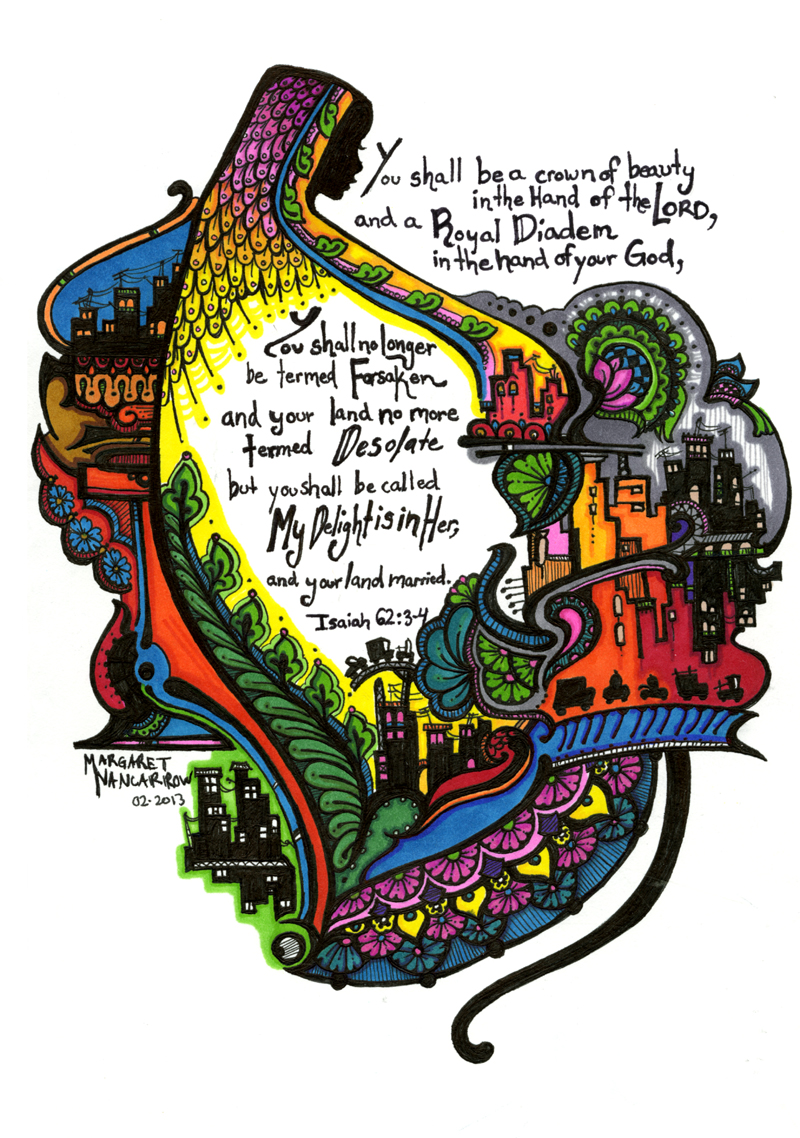 You shall be a crown of beauty
in the Hand of the LORD,
and a Royal Diadem
in the hand of your God,
You shall no Longer
be termed Forsaken
and your land no more
termed Desolate
but you shall be called
My Delight is in Her,
and your land married.
Isaiah 62:3-4
MARGARET
VANCARIROW
02-2013